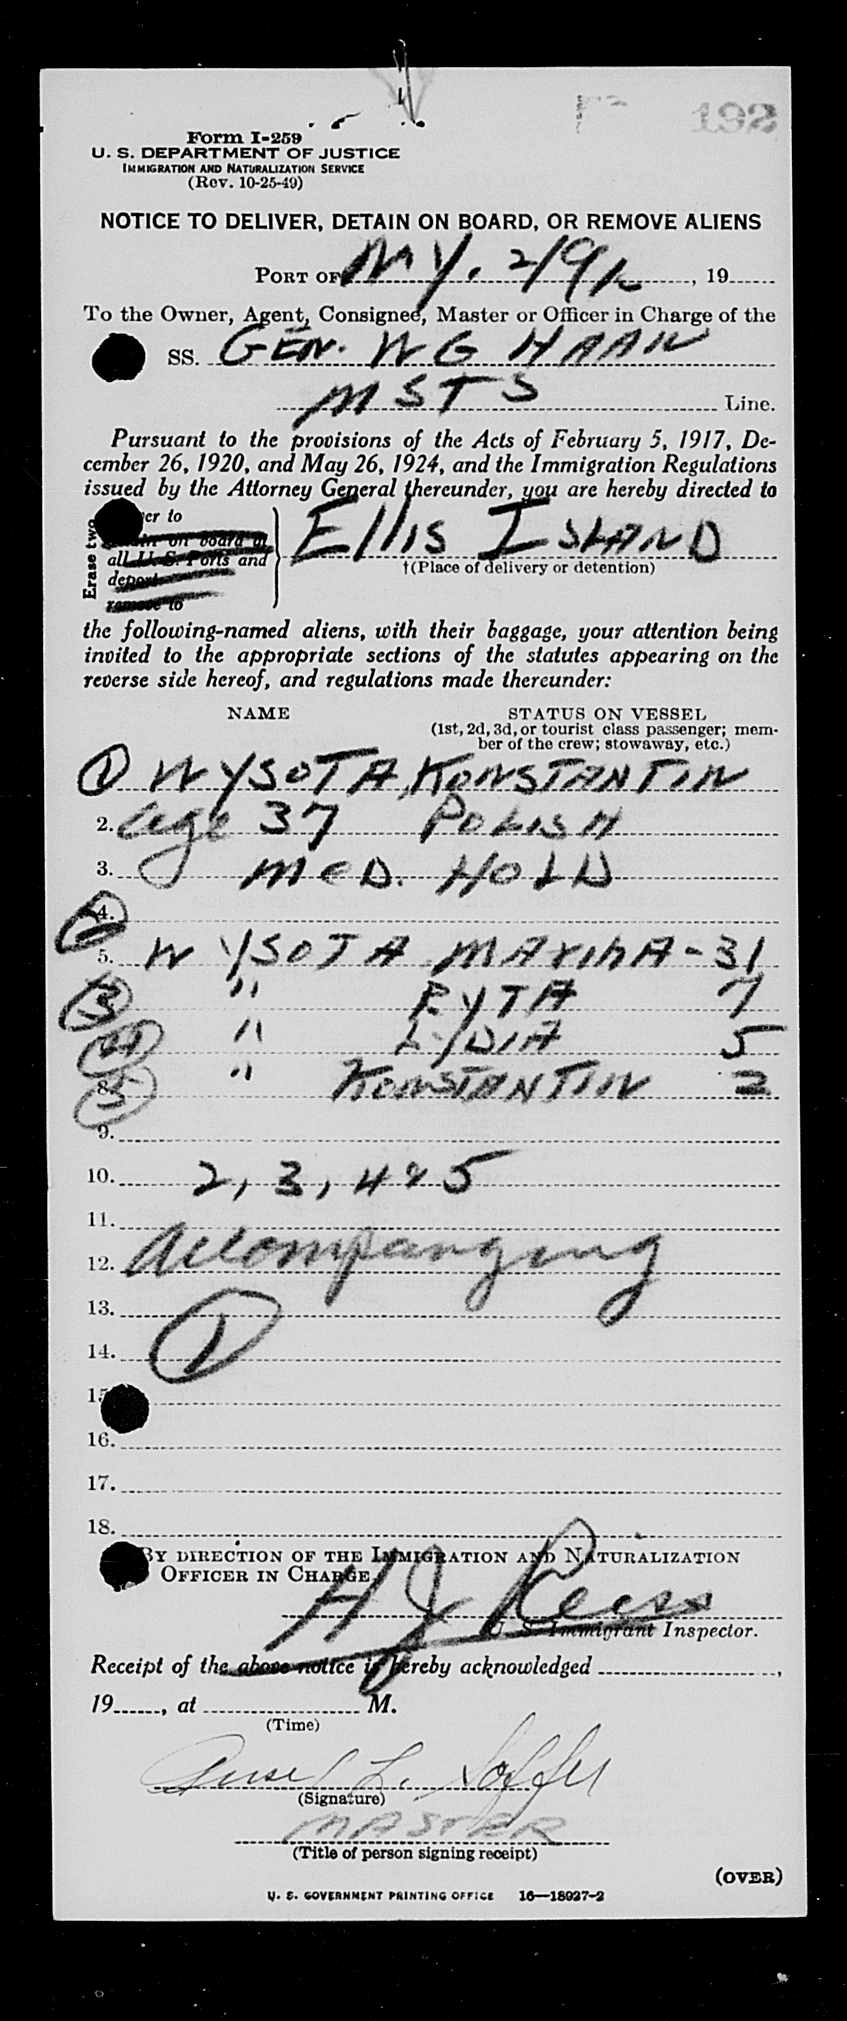 192
Form I-259
U. S. DEPARTMENT OF JUSTICE
IMMIGRATION AND NATURALIZATION SERVICE
(Rev. 10-25-49)
NOTICE TO DELIVER, DETAIN ON BOARD, OR REMOVE ALIENS
PORT OF NY. 2/9/52, 19
To the Owner, Agent, Consignee, Master or Officer in Charge of the
SS. GEN. W G HAAN
MSTS Line.
Pursuant to the provisions of the Acts of February 5, 1917, De-
cember 26, 1920, and May 26, 1924, and the Immigration Regulations
issued by the Attorney General thereunder, you are hereby directed to
Erase two
er to
on board at
all U. S. Ports and
deport
remove to
Ellis ISLAND
†(Place of delivery or detention)
the following-named aliens, with their baggage, your attention being
invited to the appropriate sections of the statutes appearing on the
reverse side hereof, and regulations made thereunder:
NAME STATUS ON VESSEL
(1st, 2d, 3d, or tourist class passenger; mem-
ber of the crew; stowaway, etc.)
1 WYSOTA, KONSTANTIN
2. age 37 POLISH
3. MED. HOLD
4.
5. WYSOTA MARIHA - 31
3 " RYTA 7
4 " LYDIA 5
8. 5 " KONSTANTIN 2
9.
10. 2, 3, 4 & 5
11.
12. accompanying
13.
14. 1
15
16.
17.
18.
BY DIRECTION OF THE IMMIGRATION AND NATURALIZATION
OFFICER IN CHARGE
H J Reiss
U. S. Immigrant Inspector.
Receipt of the above notice is hereby acknowledged ,
19 , at M.
(Time)
L.
(Signature)
MASTER
(Title of person signing receipt)
(OVER)
U. S. GOVERNMENT PRINTING OFFICE 16—18927-2